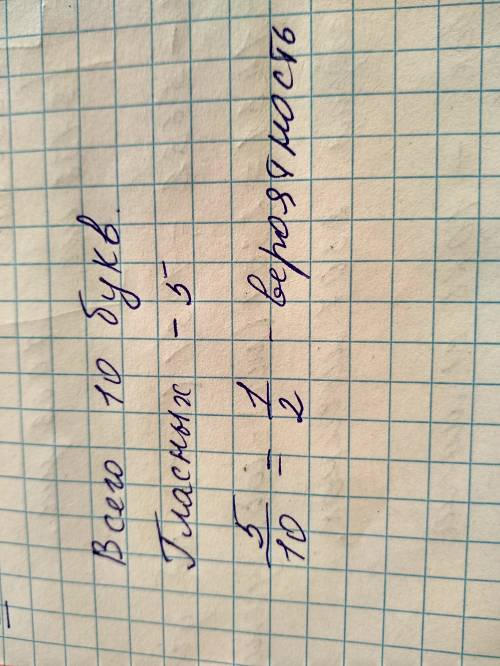 Всего 10 букв.
Гласных - 5
5/10 = 1/2 - вероятность